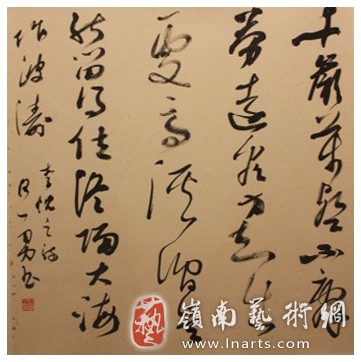 千巖萬壑不辭
勞遠看方知出
處高溪澗
能留得住終歸大海
作波濤
李忱之詩
藝 嶺南藝術網
www.lnarts.com